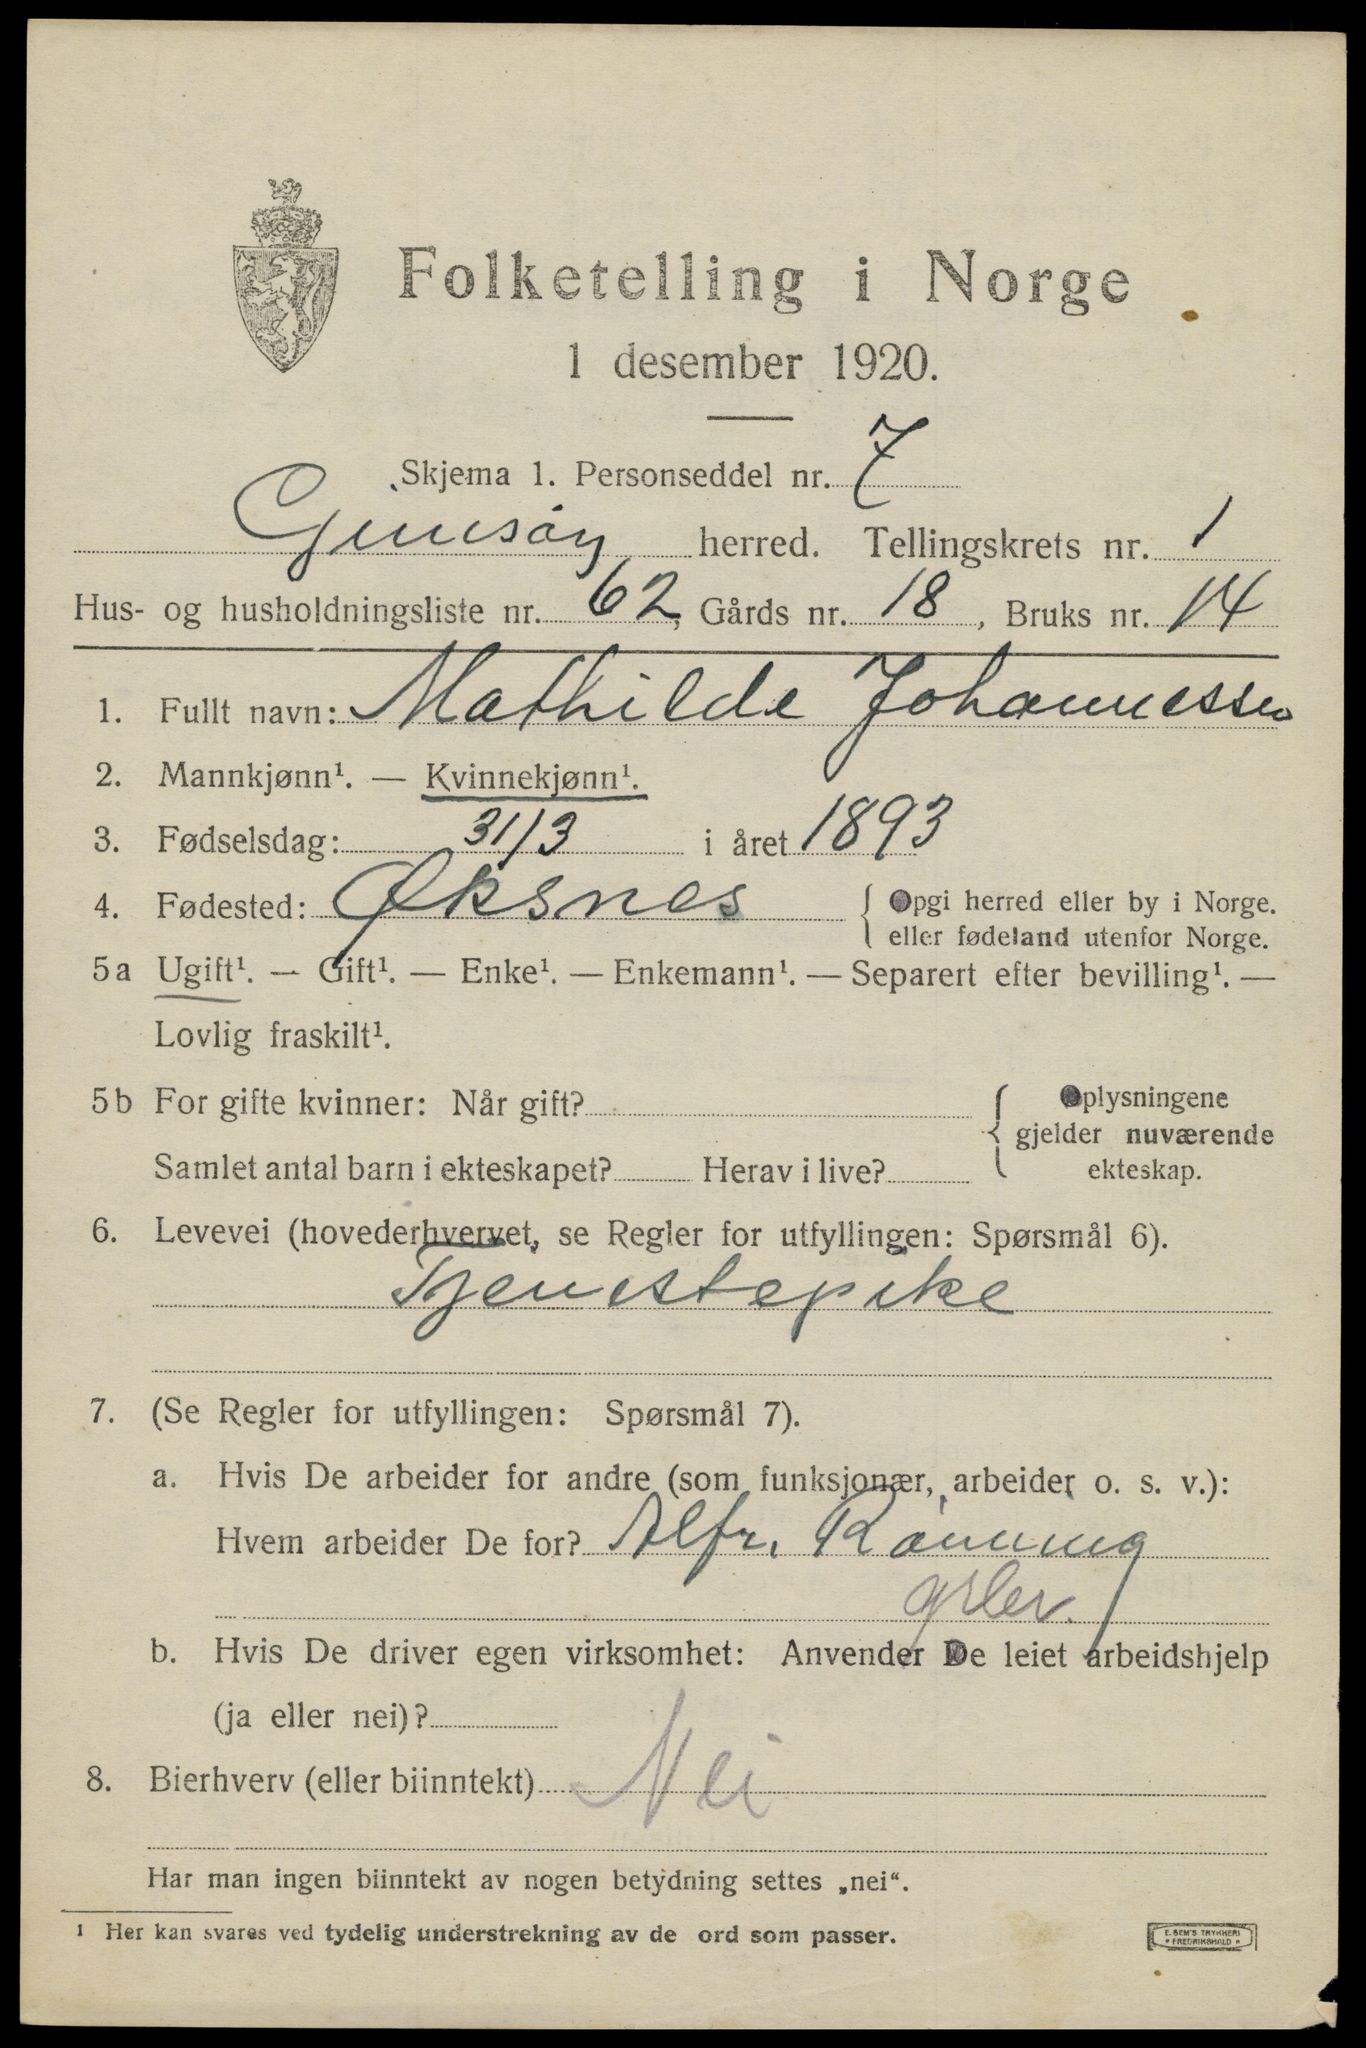 Folketelling i Norge
1 desember 1920.
Skjema 1. Personseddel nr. 7
Gimsøy herred. Tellingskrets nr. 1
Hus- og husholdningsliste nr. 62, Gårds nr. 18, Bruks nr. 14
1. Fullt navn: Mathilde Johannessen
2. Mannkjønn¹. — Kvinnekjønn¹.
3. Fødselsdag: 31/3 i året 1893
4. Fødested: Øksnes { Opgi herred eller by i Norge.
eller fødeland utenfor Norge.
5a Ugift¹. — Gift¹. — Enke¹. — Enkemann¹. — Separert efter bevilling¹. —
Lovlig fraskilt¹.
5b For gifte kvinner: Når gift? { Oplysningene
gjelder nuværende
Samlet antal barn i ekteskapet? Herav i live? ekteskap.
6. Levevei (hovederhvervet, se Regler for utfyllingen: Spørsmål 6).
Tjenestepike
7. (Se Regler for utfyllingen: Spørsmål 7).
a. Hvis De arbeider for andre (som funksjonær, arbeider o. s. v.):
Hvem arbeider De for? Alfr. Rønning
b. Hvis De driver egen virksomhet: Anvender De leiet arbeidshjelp
(ja eller nei)?
8. Bierhverv (eller biinntekt) Nei
Har man ingen biinntekt av nogen betydning settes „nei“.
¹ Her kan svares ved tydelig understrekning av de ord som passer.
E. SEM'S TRYKKERI
FREDRIKSHALD